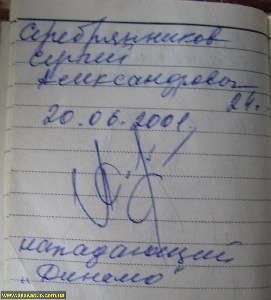 Серебрянников
Сергей
Александрович
24.
20.06.2001.
нападающий
"Динамо"